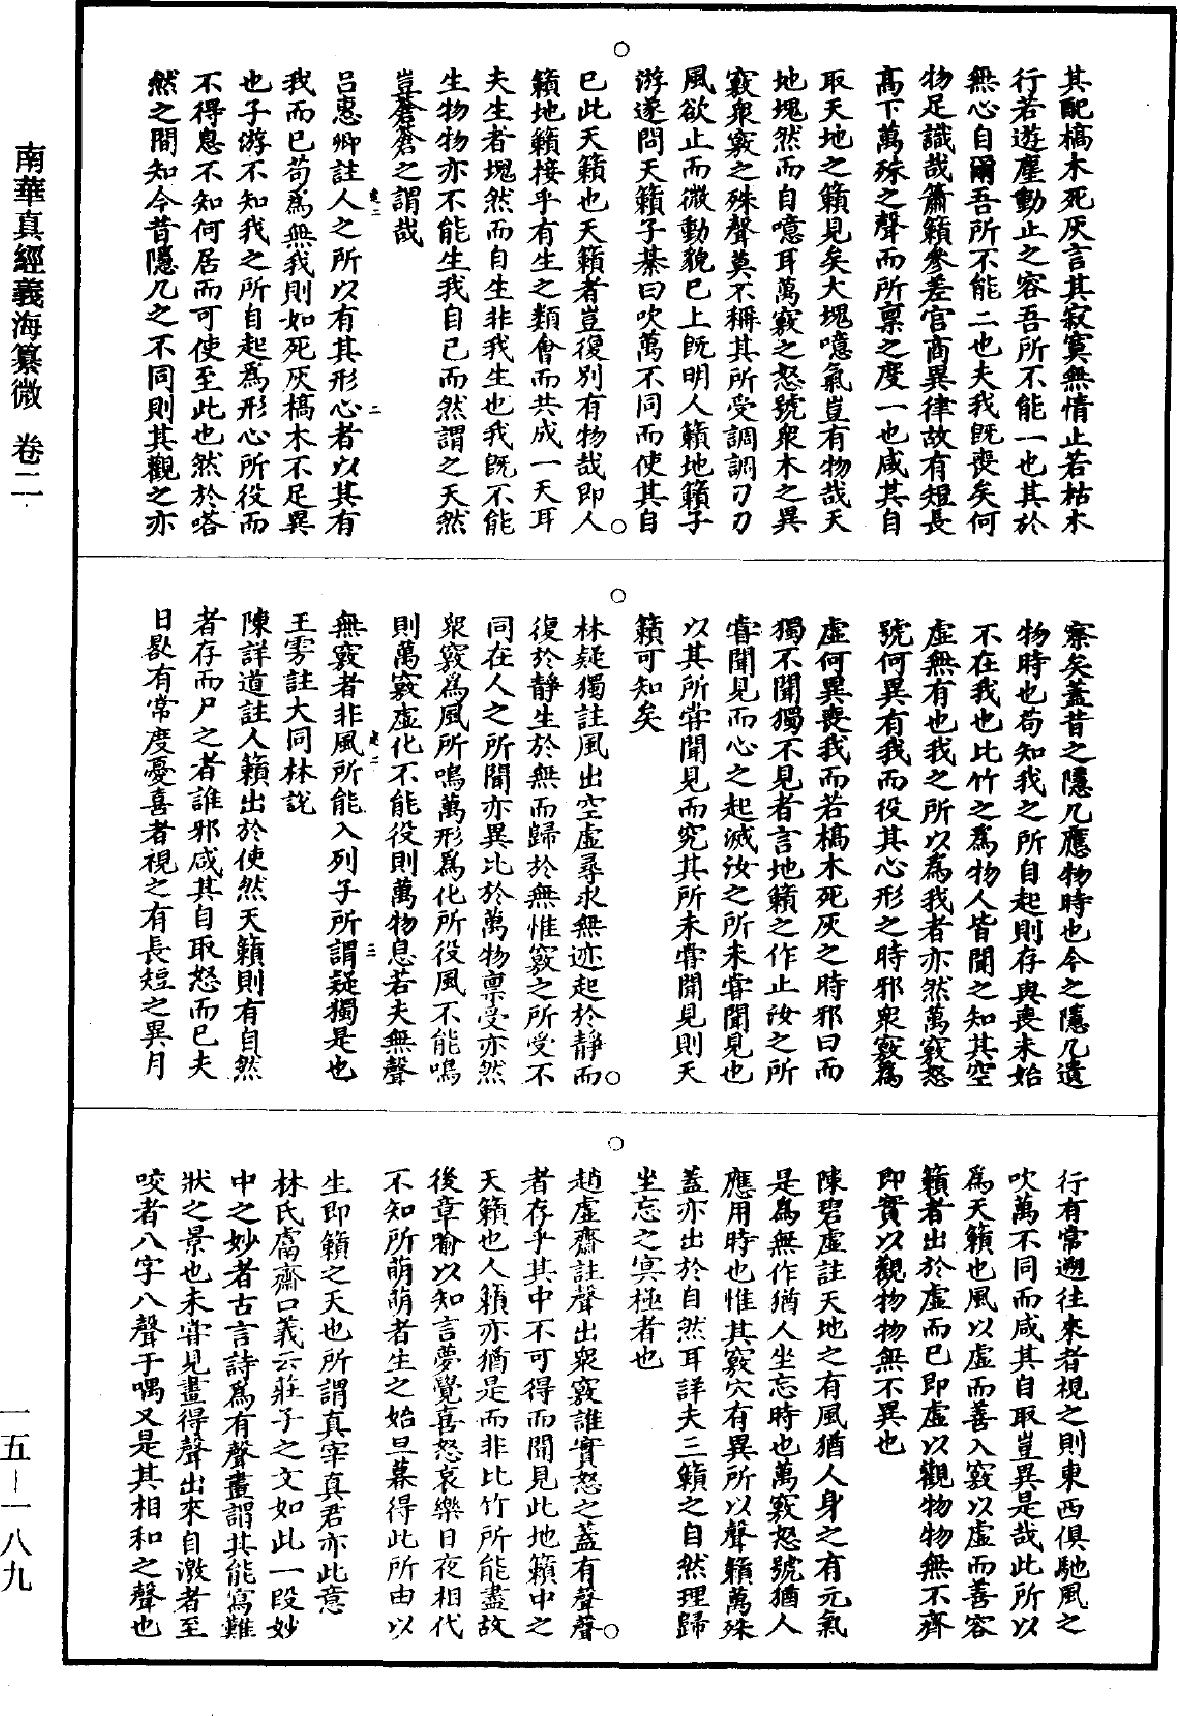 南華真經義海纂微 卷二
一五—一八九
其配槁木死灰言其寂寞無情止若枯木
行若遊塵動止之容吾所不能一也其於
無心自爾吾所不能二也夫我既喪矣何
物足識哉簫籟參差宮商異律故有短長
高下萬殊之聲而所稟之度一也咸其自
取天地之籟見矣大塊噫氣豈有物哉天
地塊然而自噫耳萬竅之怒號衆木之異
竅衆竅之殊聲莫不稱其所受調調刀刀
風欲止而微動貌已上既明人籟地籟子
游遂問天籟子綦曰吹萬不同而使其自
已此天籟也天籟者豈復別有物哉即人
籟地籟接乎有生之類會而共成一天耳
夫生者塊然而自生非我生也我既不能
生物物亦不能生我自已而然謂之天然
豈蒼蒼之謂哉
呂惠卿註人之所以有其形心者以其有
我而已苟為無我則如死灰槁木不足異
也子游不知我之所自起為形心所役而
不得息不知何居而可使至此也然於嗒
然之間知今昔隱几之不同則其觀之亦
卷二 二
察矣蓋昔之隱几應物時也今之隱几遺
物時也苟知我之所自起則存與喪未始
不在我也比竹之為物人皆聞之知其空
虛無有也我之所以為我者亦然萬竅怒
號何異有我而役其心形之時邪衆竅為
虛何異喪我而若槁木死灰之時邪曰而
獨不聞獨不見者言地籟之作止汝之所
嘗聞見而心之起滅汝之所未嘗聞見也
以其所嘗聞見而究其所未嘗聞見則天
籟可知矣
林疑獨註風出空虛尋求無迹起於靜而
復於靜生於無而歸於無惟竅之所受不
同在人之所聞亦異比於萬物稟受亦然
衆竅為風所鳴萬形為化所役風不能鳴
則萬竅虛化不能役則萬物息若夫無聲
無竅者非風所能入列子所謂疑獨是也
王雱註大同林說
陳詳道註人籟出於使然天籟則有自然
者存而尸之者誰邪咸其自取怒而已夫
日晷有常度憂喜者視之有長短之異月
卷二 三
行有常遡往來者視之則東西俱馳風之
吹萬不同而咸其自取豈異是哉此所以
為天籟也風以虛而善入竅以虛而善容
籟者出於虛而已即虛以觀物物無不齊
即實以觀物物無不異也
陳碧虛註天地之有風猶人身之有元氣
是為無作猶人坐忘時也萬竅怒號猶人
應用時也惟其竅穴有異所以聲籟萬殊
蓋亦出於自然耳詳夫三籟之自然理歸
坐忘之㝠極者也
趙虛齋註聲出衆竅誰實怒之蓋有聲聲
者存乎其中不可得而聞見此地籟中之
天籟也人籟亦猶是而非比竹所能盡故
後章喻以知言夢覺喜怒哀樂日夜相代
不知所萌萌者生之始旦暮得此所由以
生即籟之天也所謂真宰真君亦此意
林氏鬳齋口義云莊子之文如此一段妙
中之妙者古言詩為有聲畫謂其能寫難
狀之景也未嘗見畫得聲出來自激者至
咬者八字八聲于喁又是其相和之聲也